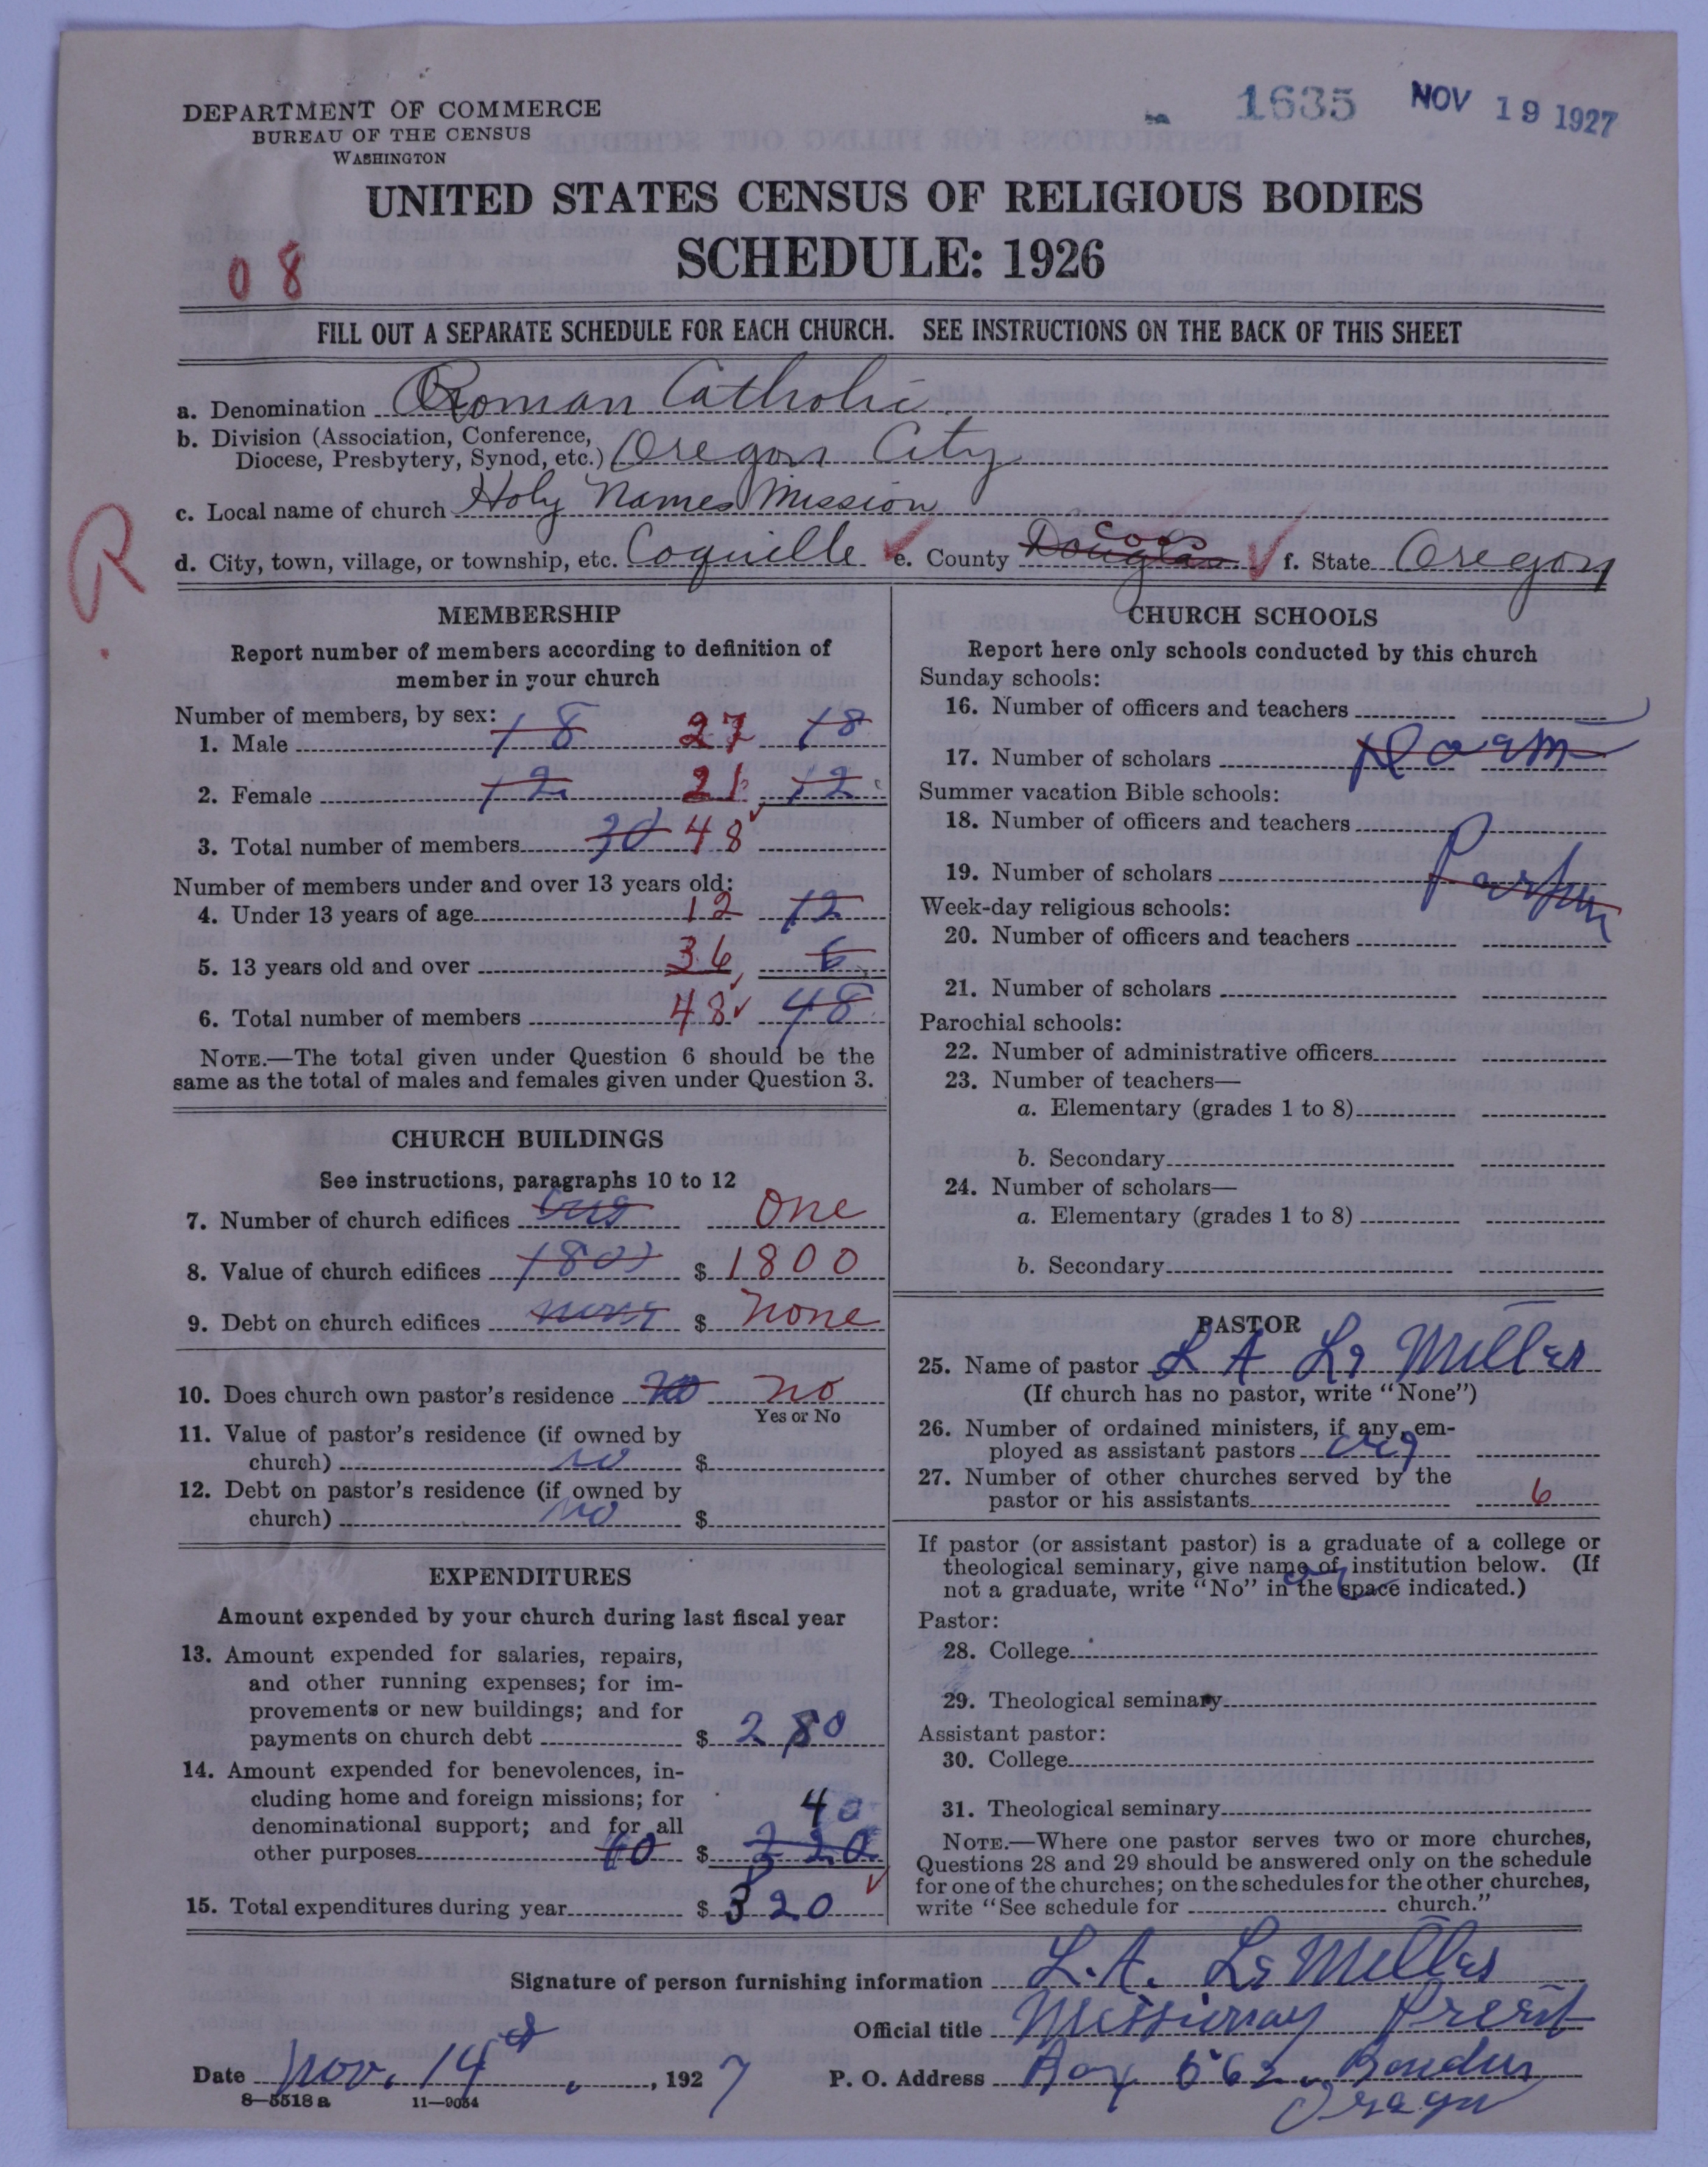 1635 NOV 19 1927
DEPARTMENT OF COMMERCE
BUREAU OF THE CENSUS
WASHINGTON
UNITED STATES CENSUS OF RELIGIOUS BODIES
SCHEDULE: 1926
08
FILL OUT A SEPARATE SCHEDULE FOR EACH CHURCH. SEE INSTRUCTIONS ON THE BACK OF THIS SHEET
a. Denomination Roman Catholic
b. Division (Association, Conference,
Diocese, Presbytery, Synod, etc.) Oregon City
c. Local name of church Holy Names Mission
R
d. City, town, village, or township, etc. Coquelle ✓ e. County Douglas Coos ✓ f. State Oregon
MEMBERSHIP
Report number of members according to definition of
member in your church
Number of members, by sex:
1. Male 18 27 18
2. Female 12 21 12
3. Total number of members 30 48 ✓
Number of members under and over 13 years old:
4. Under 13 years of age 12 12
5. 13 years old and over 36 6
6. Total number of members 48 ✓ 48
NOTE.—The total given under Question 6 should be the
same as the total of males and females given under Question 3.
CHURCH BUILDINGS
See instructions, paragraphs 10 to 12
7. Number of church edifices one One
8. Value of church edifices 1800 $ 1800
9. Debt on church edifices none $ none
10. Does church own pastor's residence no no
Yes or No
11. Value of pastor's residence (if owned by
church) no $
12. Debt on pastor's residence (if owned by
church) no $
EXPENDITURES
Amount expended by your church during last fiscal year
13. Amount expended for salaries, repairs,
and other running expenses; for im-
provements or new buildings; and for
payments on church debt $ 280
14. Amount expended for benevolences, in-
cluding home and foreign missions; for
denominational support; and for all 40
other purposes 60 $ 220
15. Total expenditures during year $ 320 ✓
CHURCH SCHOOLS
Report here only schools conducted by this church
Sunday schools:
16. Number of officers and teachers
17. Number of scholars
Summer vacation Bible schools:
18. Number of officers and teachers
19. Number of scholars
Week-day religious schools:
20. Number of officers and teachers
21. Number of scholars
Parochial schools:
22. Number of administrative officers
23. Number of teachers—
a. Elementary (grades 1 to 8)
b. Secondary
24. Number of scholars—
a. Elementary (grades 1 to 8)
b. Secondary
PASTOR
25. Name of pastor L A Le Miller
(If church has no pastor, write "None")
26. Number of ordained ministers, if any, em-
ployed as assistant pastors
27. Number of other churches served by the
pastor or his assistants 6
If pastor (or assistant pastor) is a graduate of a college or
theological seminary, give name of institution below. (If
not a graduate, write "No" in the space indicated.)
Pastor:
28. College
29. Theological seminary
Assistant pastor:
30. College
31. Theological seminary
NOTE.—Where one pastor serves two or more churches,
Questions 28 and 29 should be answered only on the schedule
for one of the churches; on the schedules for the other churches,
write "See schedule for church."
Signature of person furnishing information L.A. Le Miller
Official title Missionary Preist
Date Nov. 14, 1927 P. O. Address Box 562 Bandon
Oregon
8—5518 a 11—9054